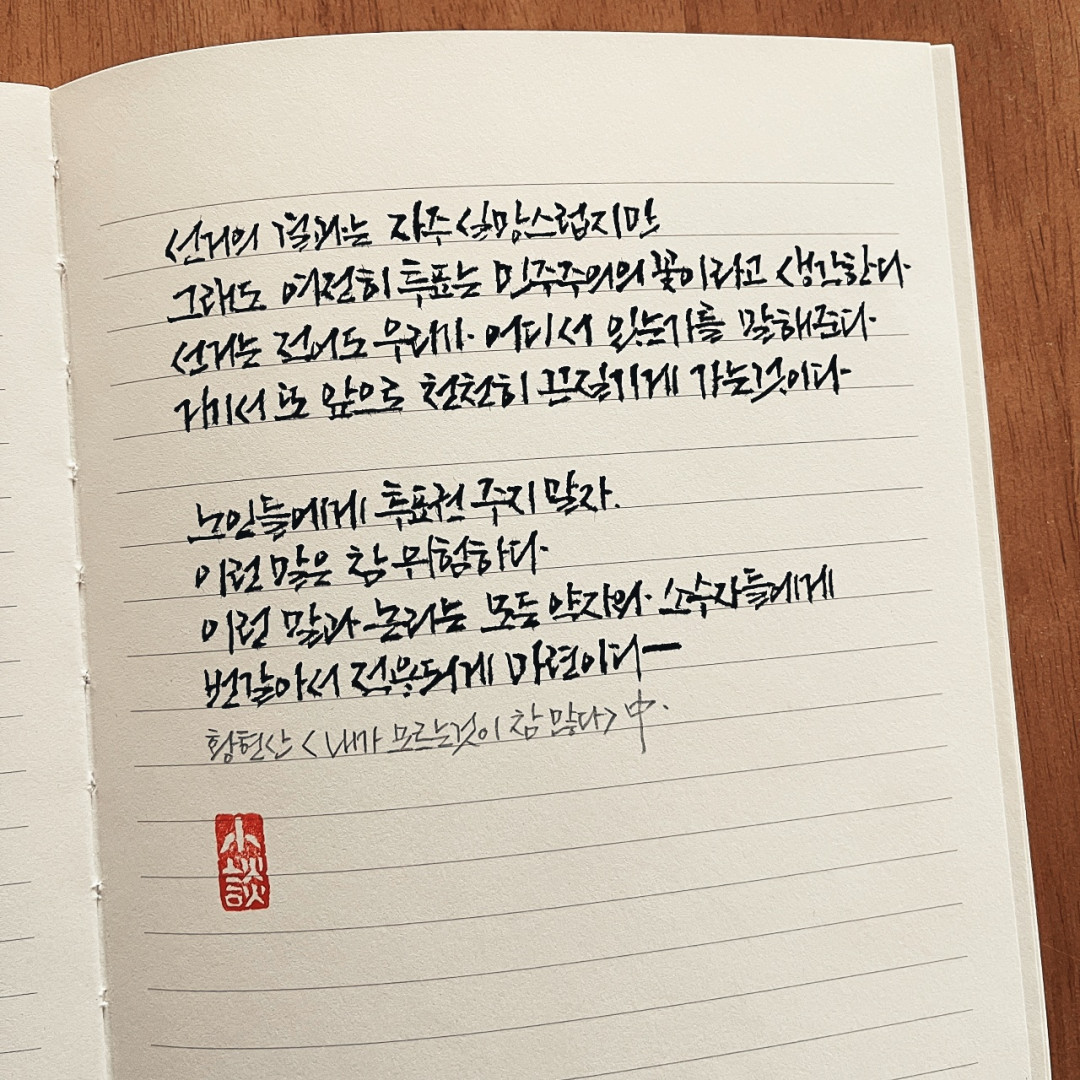 선거의 결과는 자주 실망스럽지만
그래도 여전히 투표는 민주주의의 꽃이라고 생각한다.
선거는 적어도 우리가 어디서 있는가를 말해준다.
거기서 또 앞으로 천천히 끈질기게 가는것이다.
노인들에게 투표권 주지 말자.
이런 말은 참 위험하다.
이런 말과 논리는 모든 약자와 소수자들에게
번갈아서 적용되게 마련이다ㅡ
황현산 <내가 모르는것이 참 많다> 中.
小談